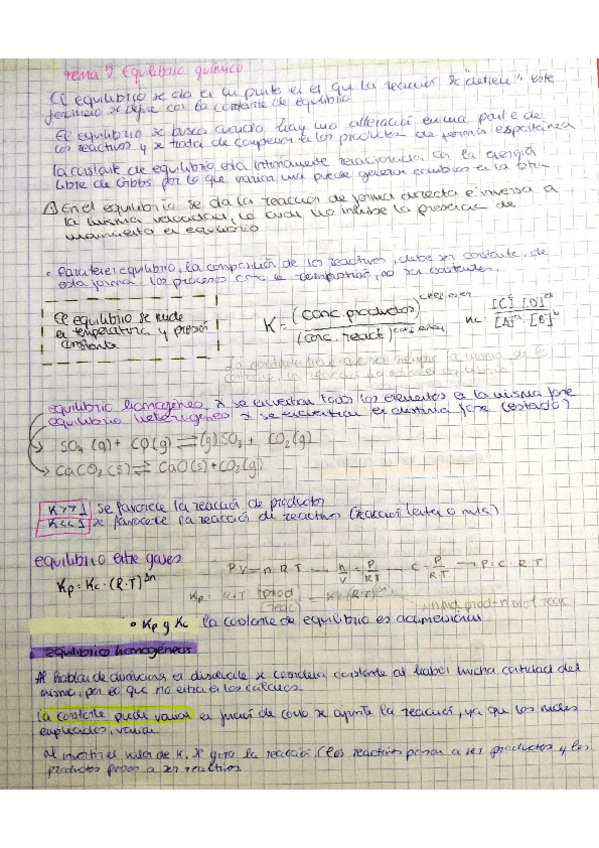 Tema 5 Equilibrio químico
El equilibrio se da en un punto en el que la reacción se "detiene", este
fenómeno se define con la constante de equilibrio
El equilibrio se busca cuando hay una alteración en una parte de
los reactivos y se trata de compensar en los productos de forma espontánea
la constante de equilibrio está íntimamente relacionada con la energía
libre de Gibbs por lo que variar una puede generar cambios en la otra
En el equilibrio se da la reacción de forma directa e inversa a
la misma velocidad, lo cual no impide la presencia de
movimiento en equilibrio
• Para tener equilibrio, la composición de los reactivos, debe ser constante, de
esta forma los procesos como la combustión, no son constantes.
El equilibrio se mide
en temperatura y presión
constante
K = (conc. productos) / (conc. react)
Kc = [C]^c [D]^d / [A]^a [B]^b
equilibrio homogéneo → se encuentran todos los elementos en la misma fase
equilibrio heterogéneo → se encuentran en distinta fase (estado)
SO4 (g) + CO(g) ⇌ (g)SO3 + CO2(g)
CaCO3(s) ⇌ CaO(s) + CO2(g)
K>>1 se favorece la reacción de productos
K<<1 se favorece la reacción de reactivos (reacción lenta o nula)
equilibrio entre gases
PV = n·R·T → n/V = P/RT → C = P/R·T → P = C·R·T
Kp = Kc · (R·T)^Δn
• Kp y Kc la constante de equilibrio es adimensional
equilibrios homogéneos
Al hablar de disoluciones el disolvente se considera constante al haber mucha cantidad del
mismo, por lo que no entra en los cálculos.
la constante puede variar en función de como se ajusta la reacción, ya que los moles
empleados, varían
al invertir el valor de K, se gira la reacción (los reactivos pasan a ser productos y los
productos pasan a ser reactivos